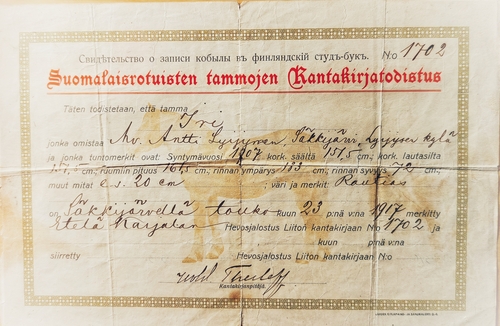 Свидѣтельство о записи кобылы въ финляндскій студъ-букъ. N:o 1702
Suomalaisrotuisten tammojen Kantakirjatodistus
Täten todistetaan, että tamma
jonka omistaa Mv. Antti Lyijynen, Säkkijärvi, kylä
ja jonka tuntomerkit ovat: Syntymävuosi 1907 kork. säältä 151,5 cm.; kork. lautasilta
cm., ruumiin pituus cm., rinnan ympärys 183 cm., rinnan syvyys 72 cm.;
muut mitat e. s. 20 cm ; väri ja merkit: Rautias
on Säkkijärvellä touko kuun 23 p:nä v:na 1917 merkitty
Etelä Karjalan Hevosjalostus Liiton kantakirjaan N:o 1702 ja
kuun p:nä v:na
siirretty Hevosjalostus Liiton kantakirjaan N:o
Kantakirjanpitäjä.